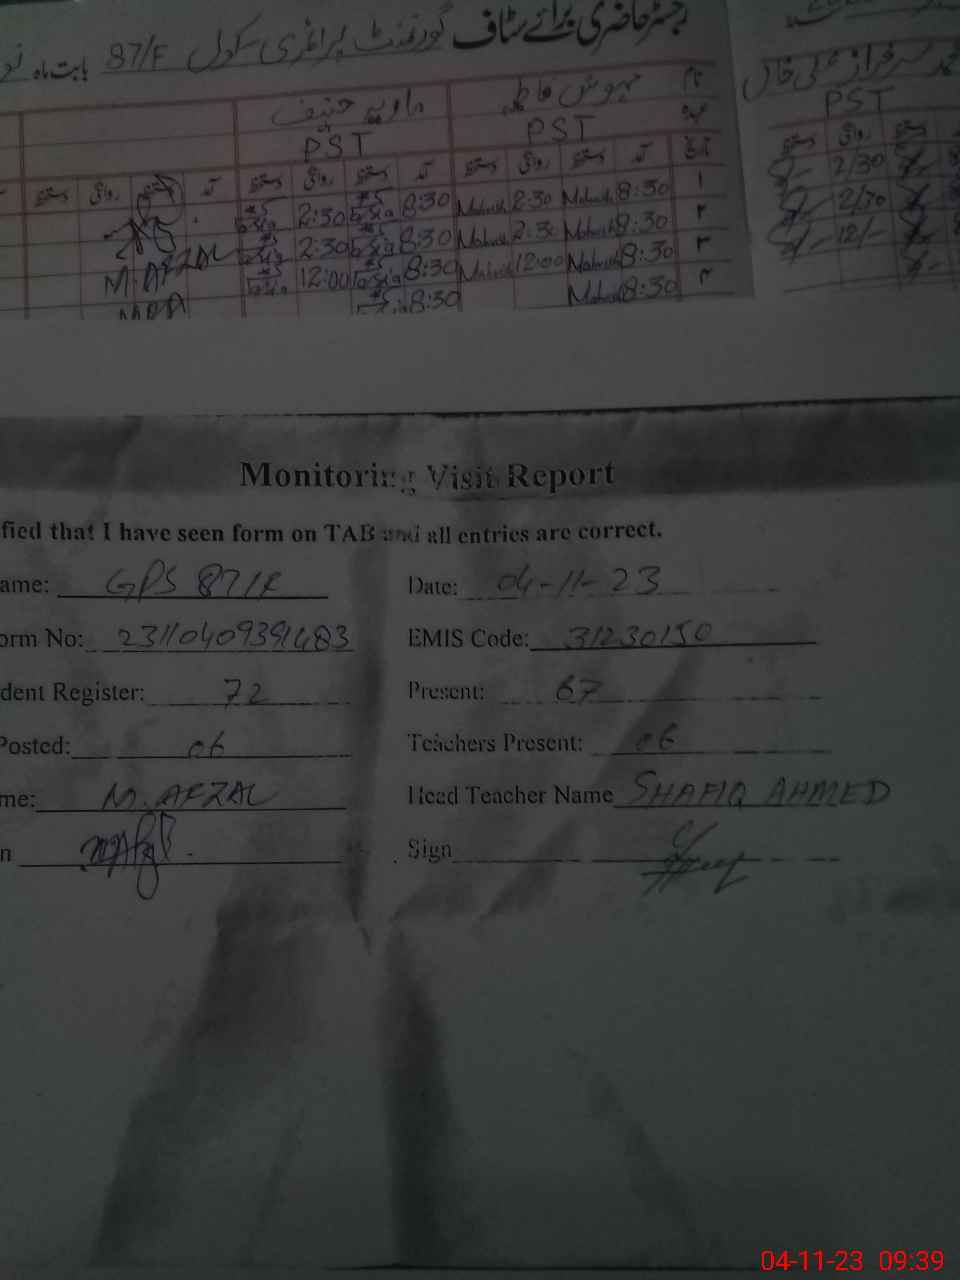 رجسٹر حاضری برائے سٹاف گورنمنٹ پرائمری سکول 87/F بابت ماہ
نام مہوش فاطمہ ماویہ حنیف
عہدہ PST PST
تاریخ آمد دستخط روانگی دستخط آمد دستخط روانگی دستخط آمد دستخط روانگی دستخط
۱ 8:30 Mahwish 2:30 Mahwish 8:30 2:30
۲ 8:30 Mahwish 2:30 Mahwish 8:30 2:30
۳ 8:30 Mahwish 12:00 Mahwish 8:30 12:00 M. AFZAL
۴ 8:30 Mahwish 8:30
محمد سرفراز علی خان
PST
دستخط روانگی دستخط
2/30
2/30
12/-
Monitoring Visit Report
fied that I have seen form on TAB and all entries are correct.
ame: GPS 87/F Date: 04-11-23
orm No: 23110409391483 EMIS Code: 31230150
dent Register: 72 Present: 67
Posted: 06 Teachers Present: 06
me: M. AFZAL Head Teacher Name SHAFIQ AHMED
n Sign
04-11-23 09:39